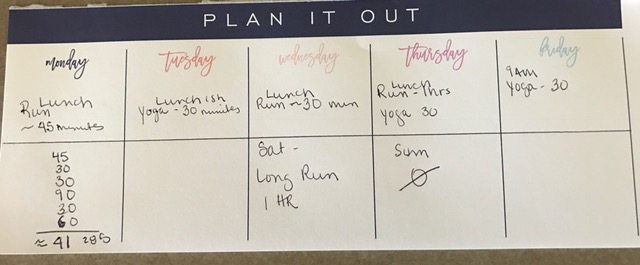 PLAN IT OUT
monday
Lunch
Run
~ 45 minutes
tuesday
Lunch ish
Yoga - 30 minutes
wednesday
Lunch
Run ~ 30 min
thursday
Lunch
Run - 1hrs
Yoga 30
friday
9AM
Yoga - 30
45
30
30
90
30
60
≈ 41 285
Sat -
Long Run
1 HR
Sun
Ø